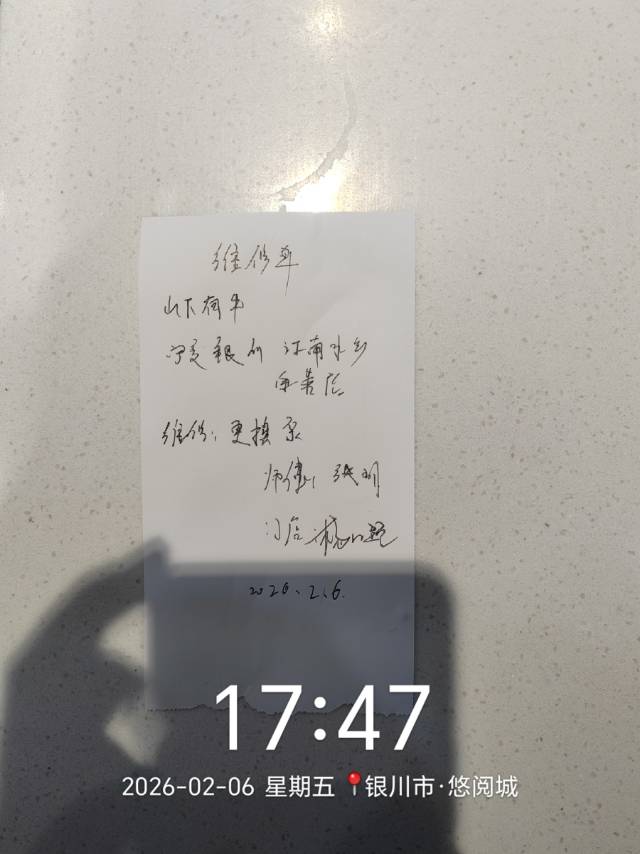 维修单
山下有牛
宁夏银川 江南水乡
店
维修：更换泵
师傅：张明
门店
2026.2.6.
17:47
2026-02-06 星期五 银川市·悠阅城